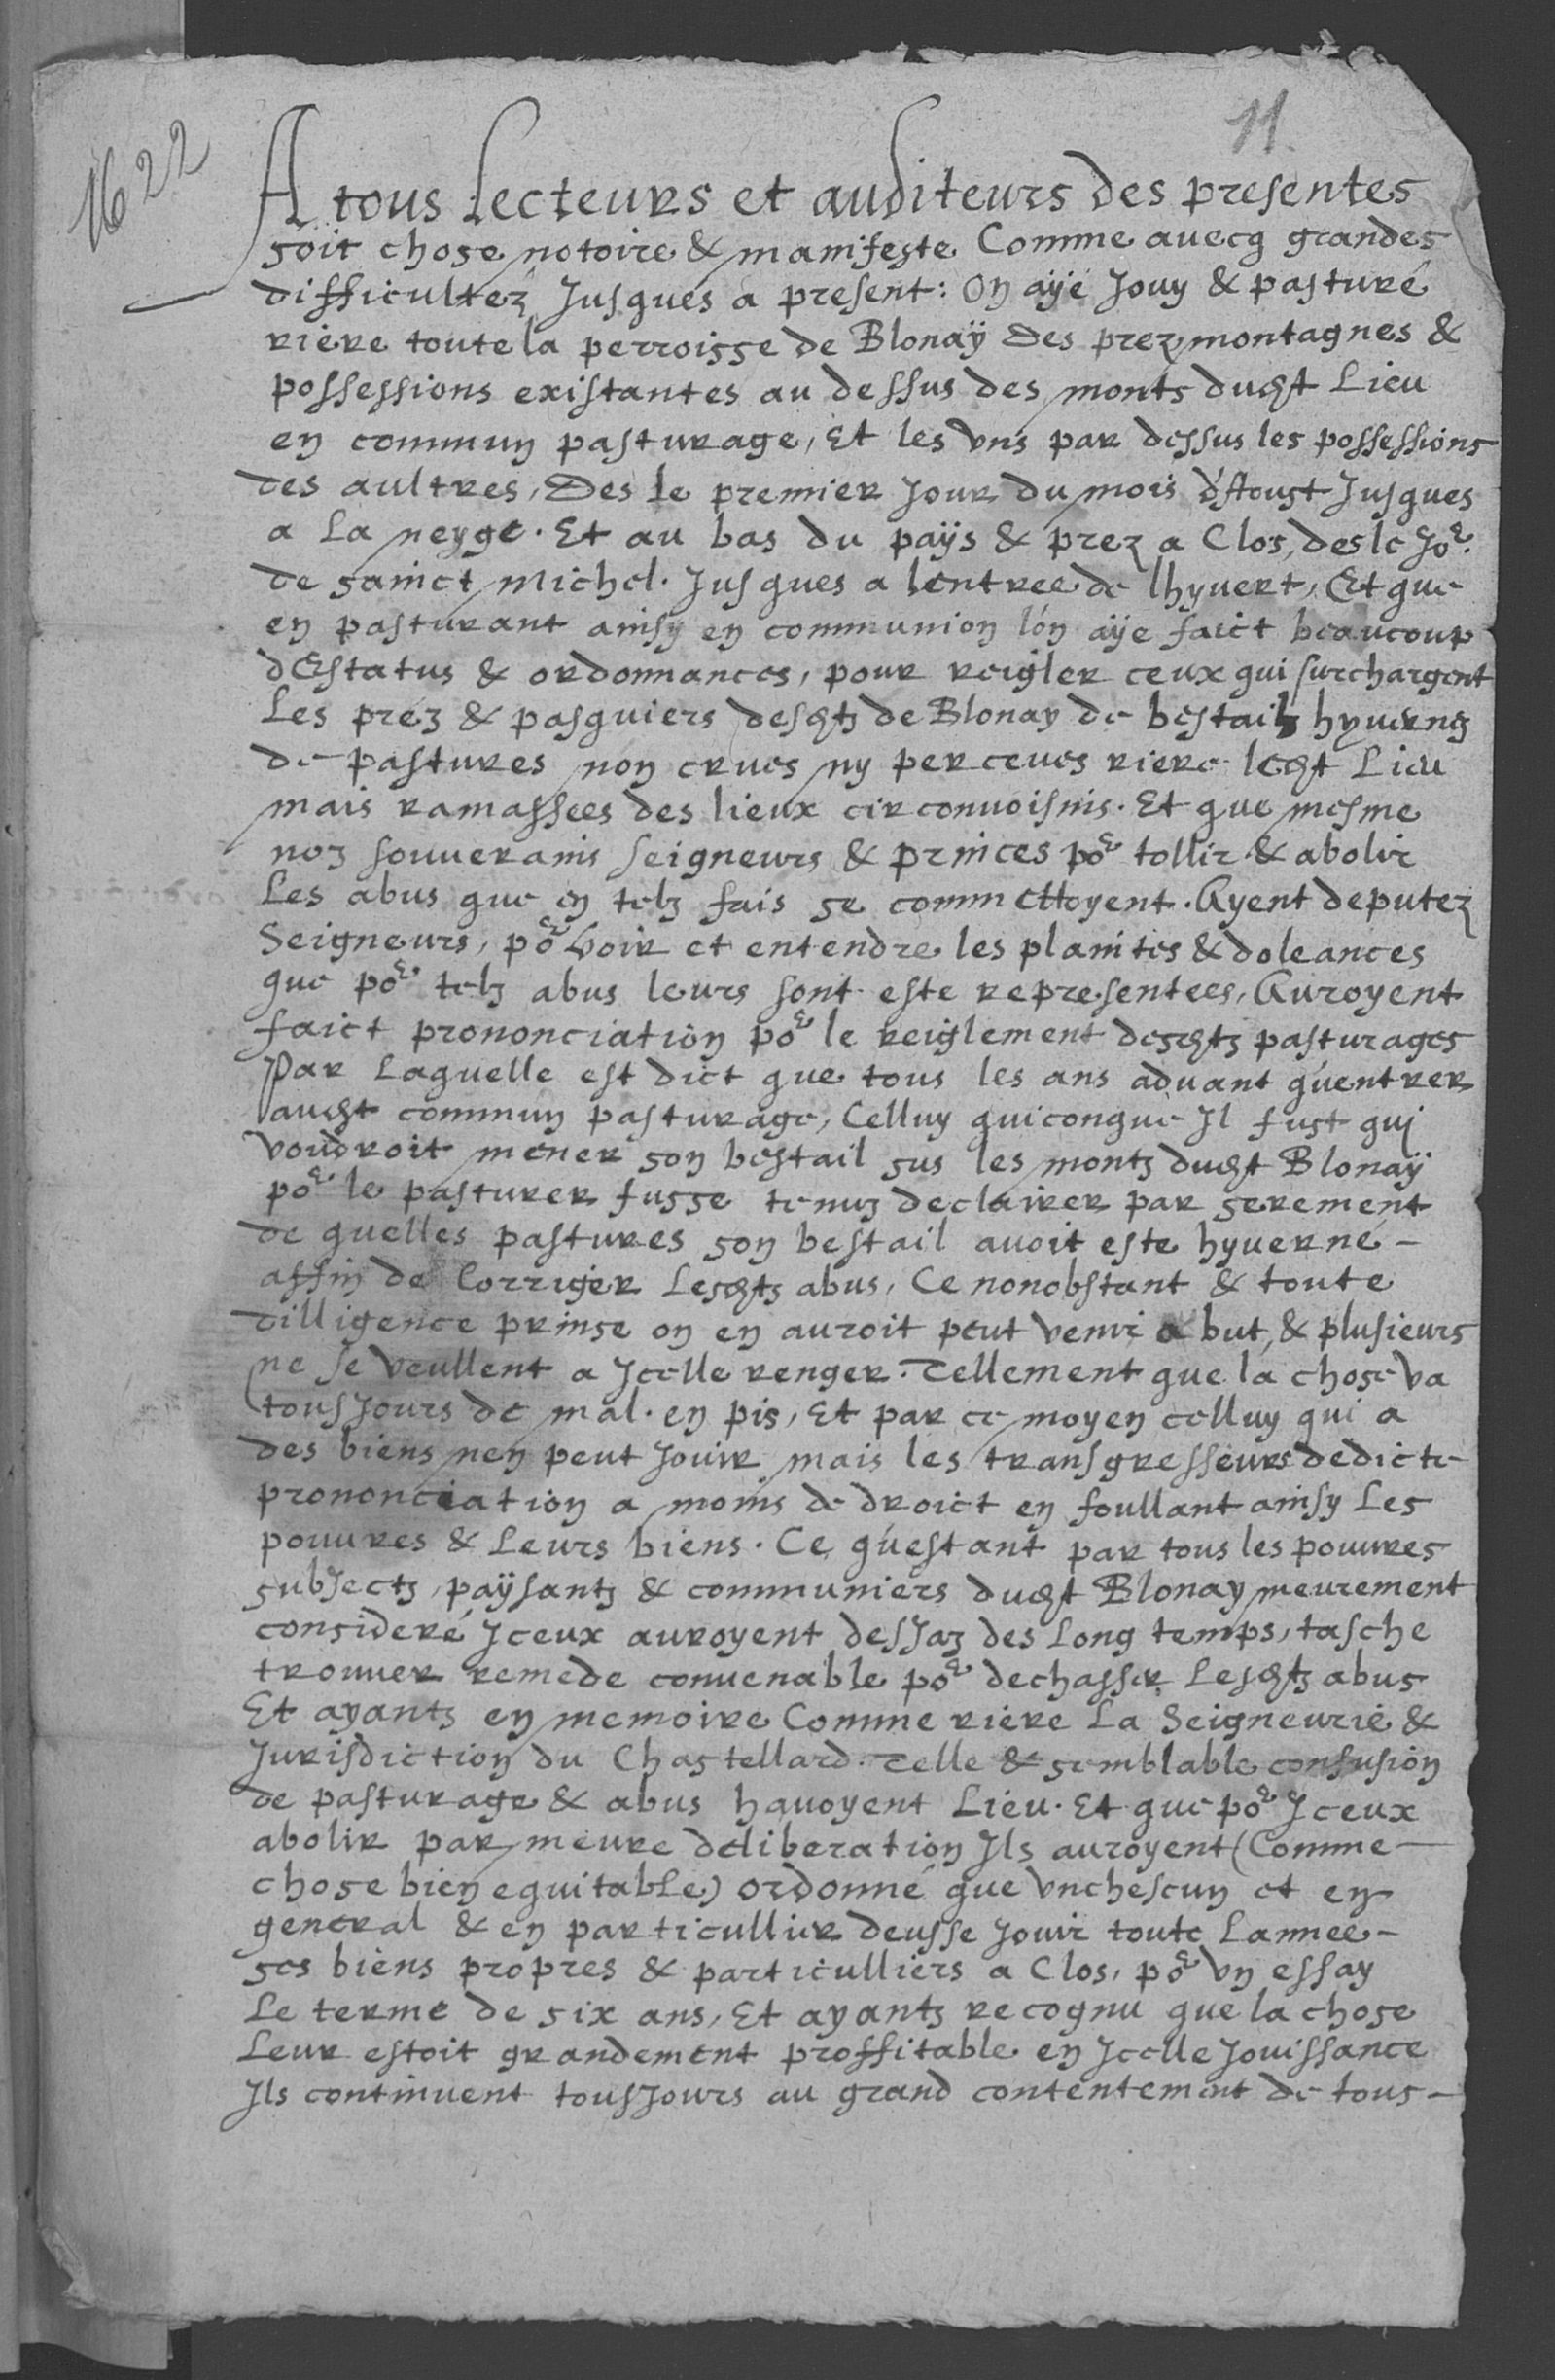 11
1622
A tous Lecteurs et auditeurs des presentes
soit chose notoire & manifeste Comme avecq grandes
difficultez Jusques a present: On aÿe Jouy & pasturé
riere toute la perroisse de Blonaÿ des prez montagnes &
possessions existantes au dessus des monts dudt Lieu
en commun pasturage, Et les vns par dessus les possessions
des aultres, Des le premier Jour du mois d'Aoust Jusques
a La neyge. Et au bas du paÿs & prez a Clos, des le Jor.
de sainct Michel. Jusques a lentree de lhyuert, Et que
en pasturant ainsy en communion lón aÿe faict beaucoup
dEstatus & ordonnances, pour reigler ceux qui surchargent
Les prez & pasquiers desdtz de Blonay de bestailz hyuernez
de pastures non crues ny perceues riere ledt Lieu
mais ramassees des lieux circonuoisins. Et que mesme
noz souuerains seigneurs & princes por tollir & abolir
Les abus que en telz fais se commettoyent. Ayent deputez
Seigneurs, por voir et entendre les plaintes & doleances
que por telz abus leurs sont este representees, Auroyent
faict prononciation por le reiglement desdtz pasturages
Par Laquelle est dict que tous les ans aduant qúentrer
audt commun pasturage, Celluy quiconque Jl fust qui
voudroit mener son bestail sus les montz dudt Blonaÿ
por le pasturer fusse tenuz declairer par serement
de quelles pastures son bestail auoit este hyuerné –
affin de Corriger Lesdtz abus, Ce nonobstant & toute
dilligence prinse on en auroit peut venir a but, & plusieurs
ne se veullent a Jcelle renger. Tellement que la chose va
tousJours de mal. en pis, Et par ce moyen celluy qui a
des biens nen peut Jouir mais les transgresseurs dedicte
prononciation a moins de droict en foullant ainsy Les
pouures & Leurs biens. Ce qúestant par tous les pouures
subJectz, paÿsantz & communiers dudt Blonay meurement
consideré Jceux auroyent desJaz des Long temps, tasche
trouuer remede conuenable por dechasser Lesdtz abus
Et ayantz en memoire Comme riere La Seigneurie &
Jurisdiction du Chastellard. Telle & semblable confusion
de pasturage & abus hauoyent Lieu. Et que por Jceux
abolir par meure deliberation Jls auroyent (Comme –
chose bien equitable) ordonné que vnchescun et en
general & en particullier deusse Jouir toute Lannee –
ses biens propres & particulliers a Clos, por vn essay
Le terme de six ans, Et ayantz recognu que la chose
Leur estoit grandement proffitable en Jcelle Jouissance
Jls continuent tousJours au grand contentement de tous –